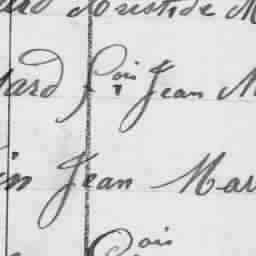 Aristide M
ard fois Jean M
in Jean Mar
ois